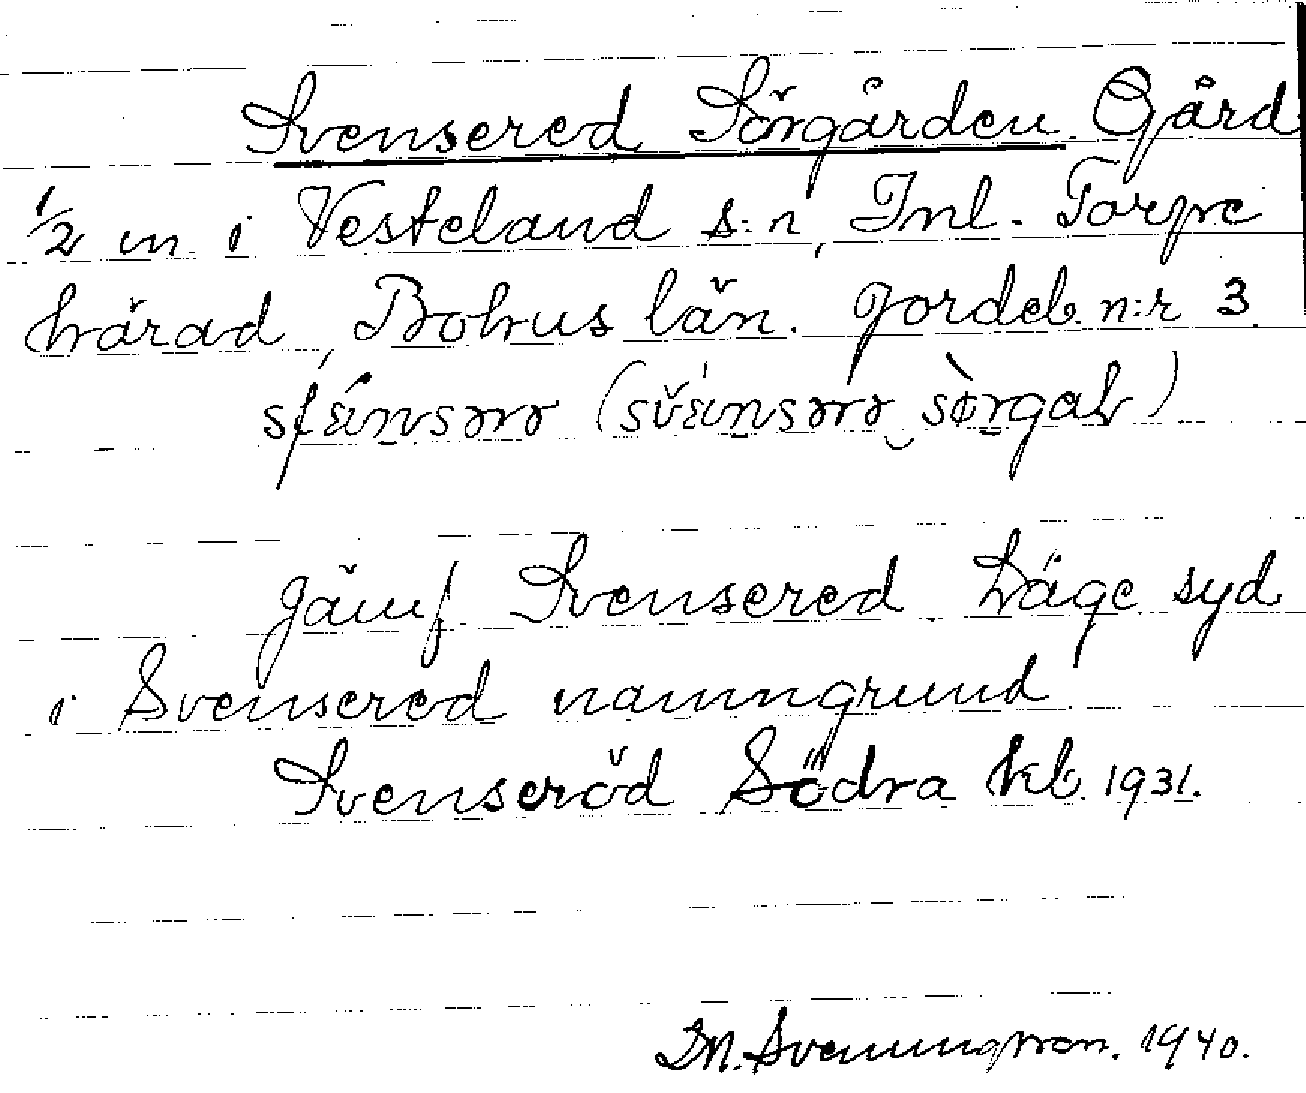 Svensered Sörgården. Gård
1/2 m. i Vesteland s:n, Inl. Torpe
härad, Bohus län. Jordeb. n:r 3.
Jämf. Svensered Läge syd
i Svensered namngrund
Svenseröd Södra kb. 1931.
D.N. Svenningsson. 1940.